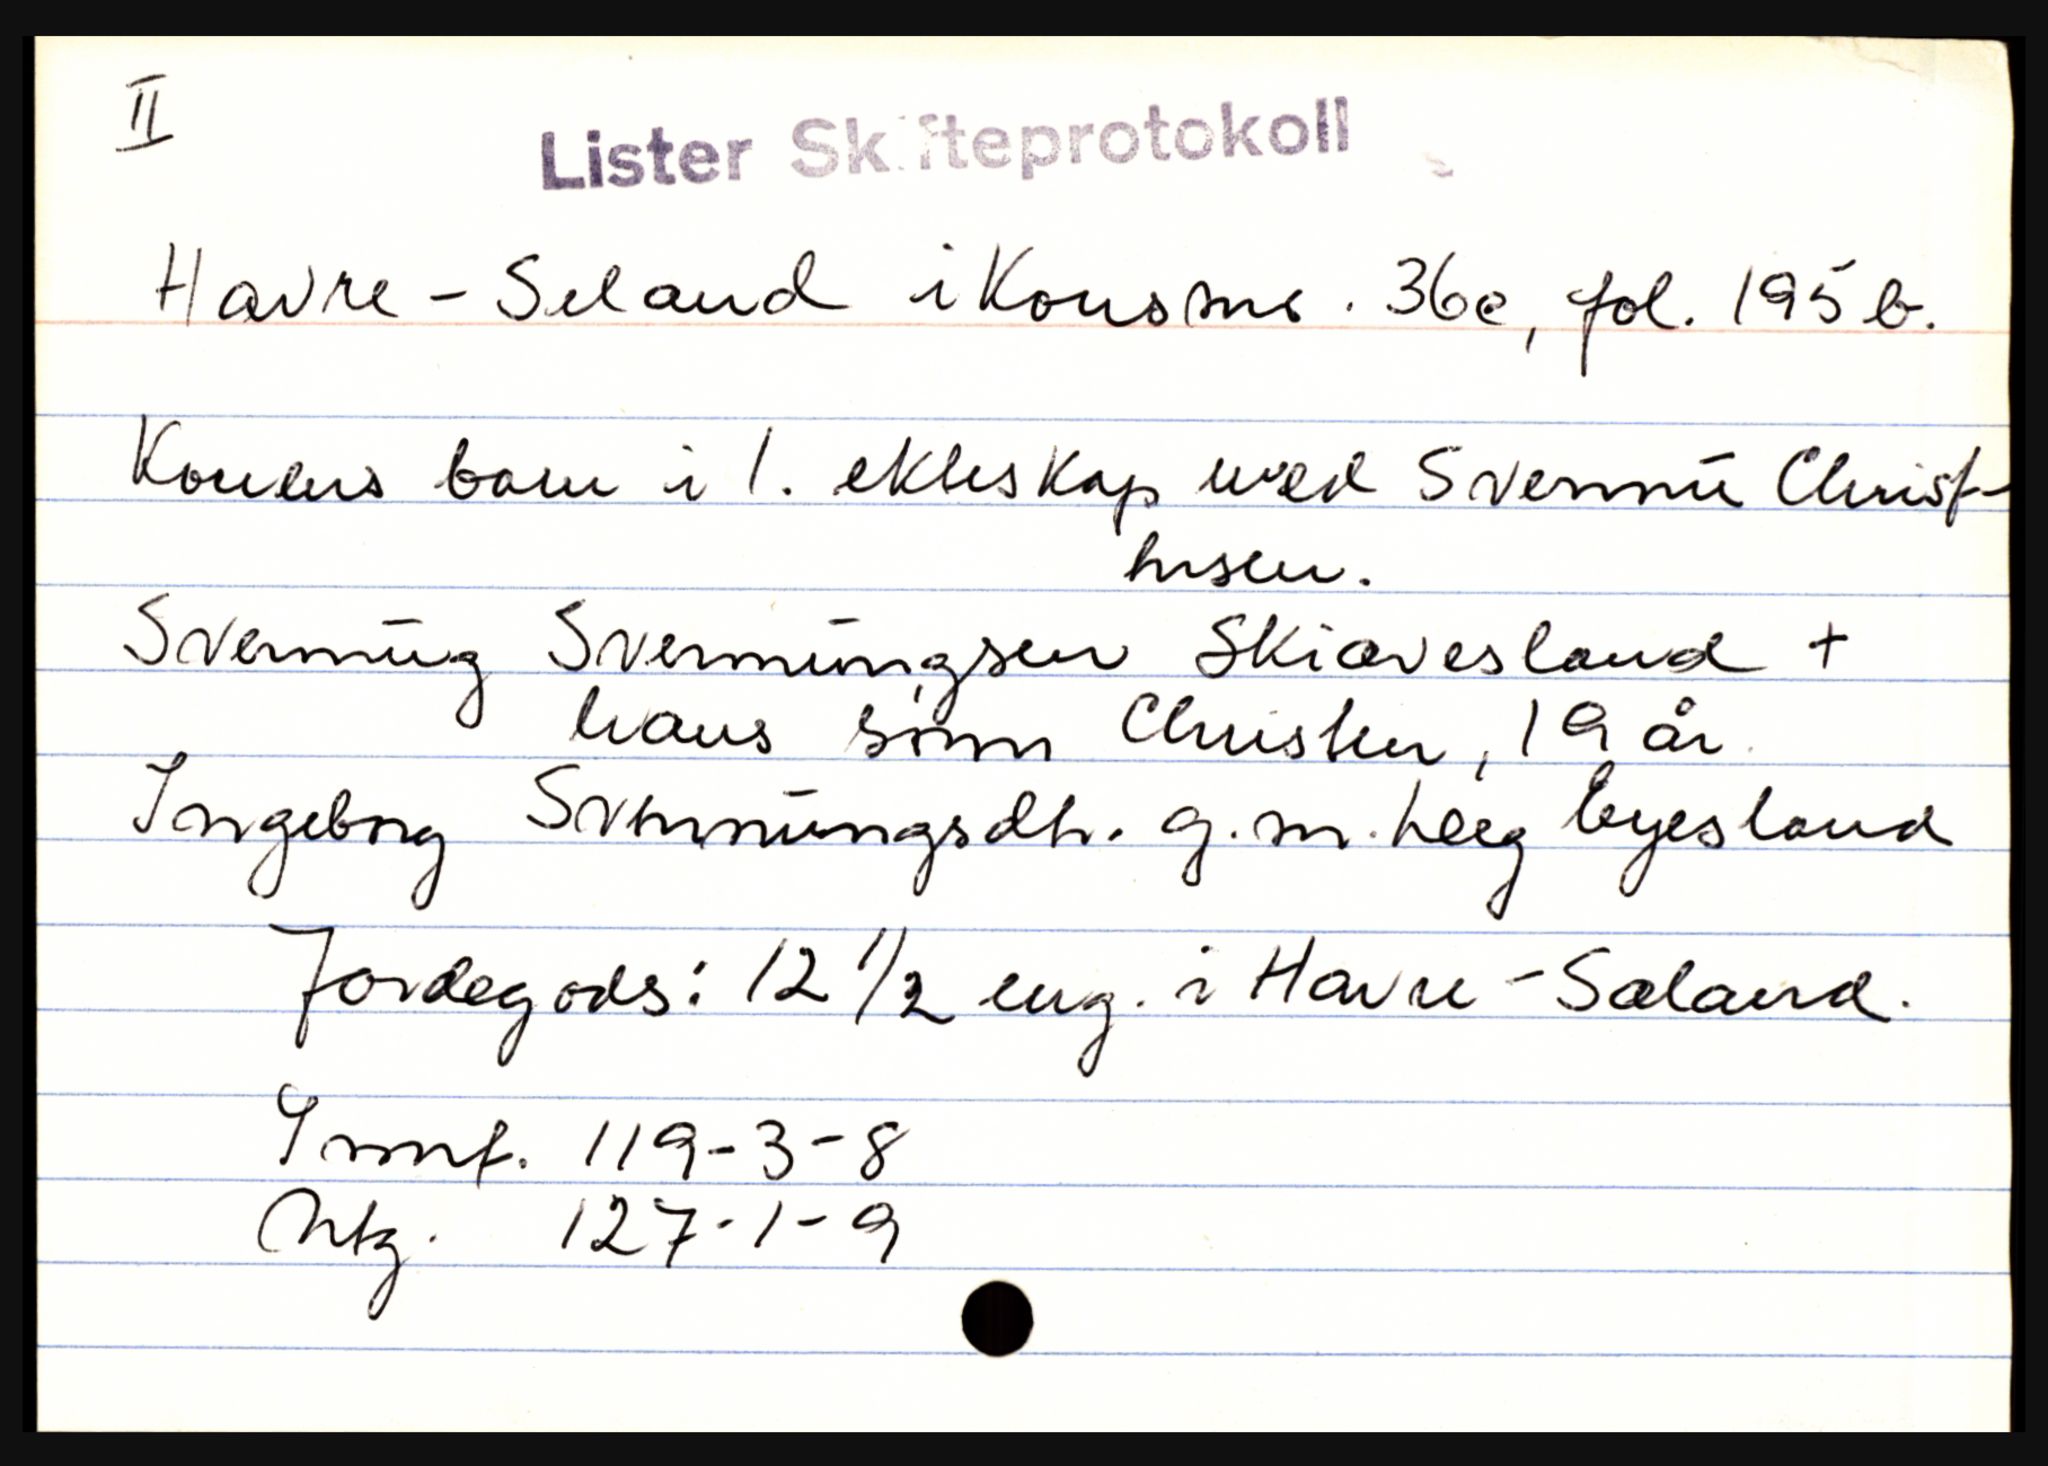 II
Lister Skifteprotokoll
Havre - Seland i Konsmo. 36e, fol. 195 b.
Konens barn i 1. ekteskap med Svennū Christ-
ensen.
Svennūg Svennūngsen Skiævesland +
hans sønn Christen, 19 år.
Ingeborg Svennūngsdtr. g.m. Leeg Eyesland
Jordegods: 12 1/2 eng. i Havre - Sæland.
Innf. 119-3-8
Utg. 127-1-9